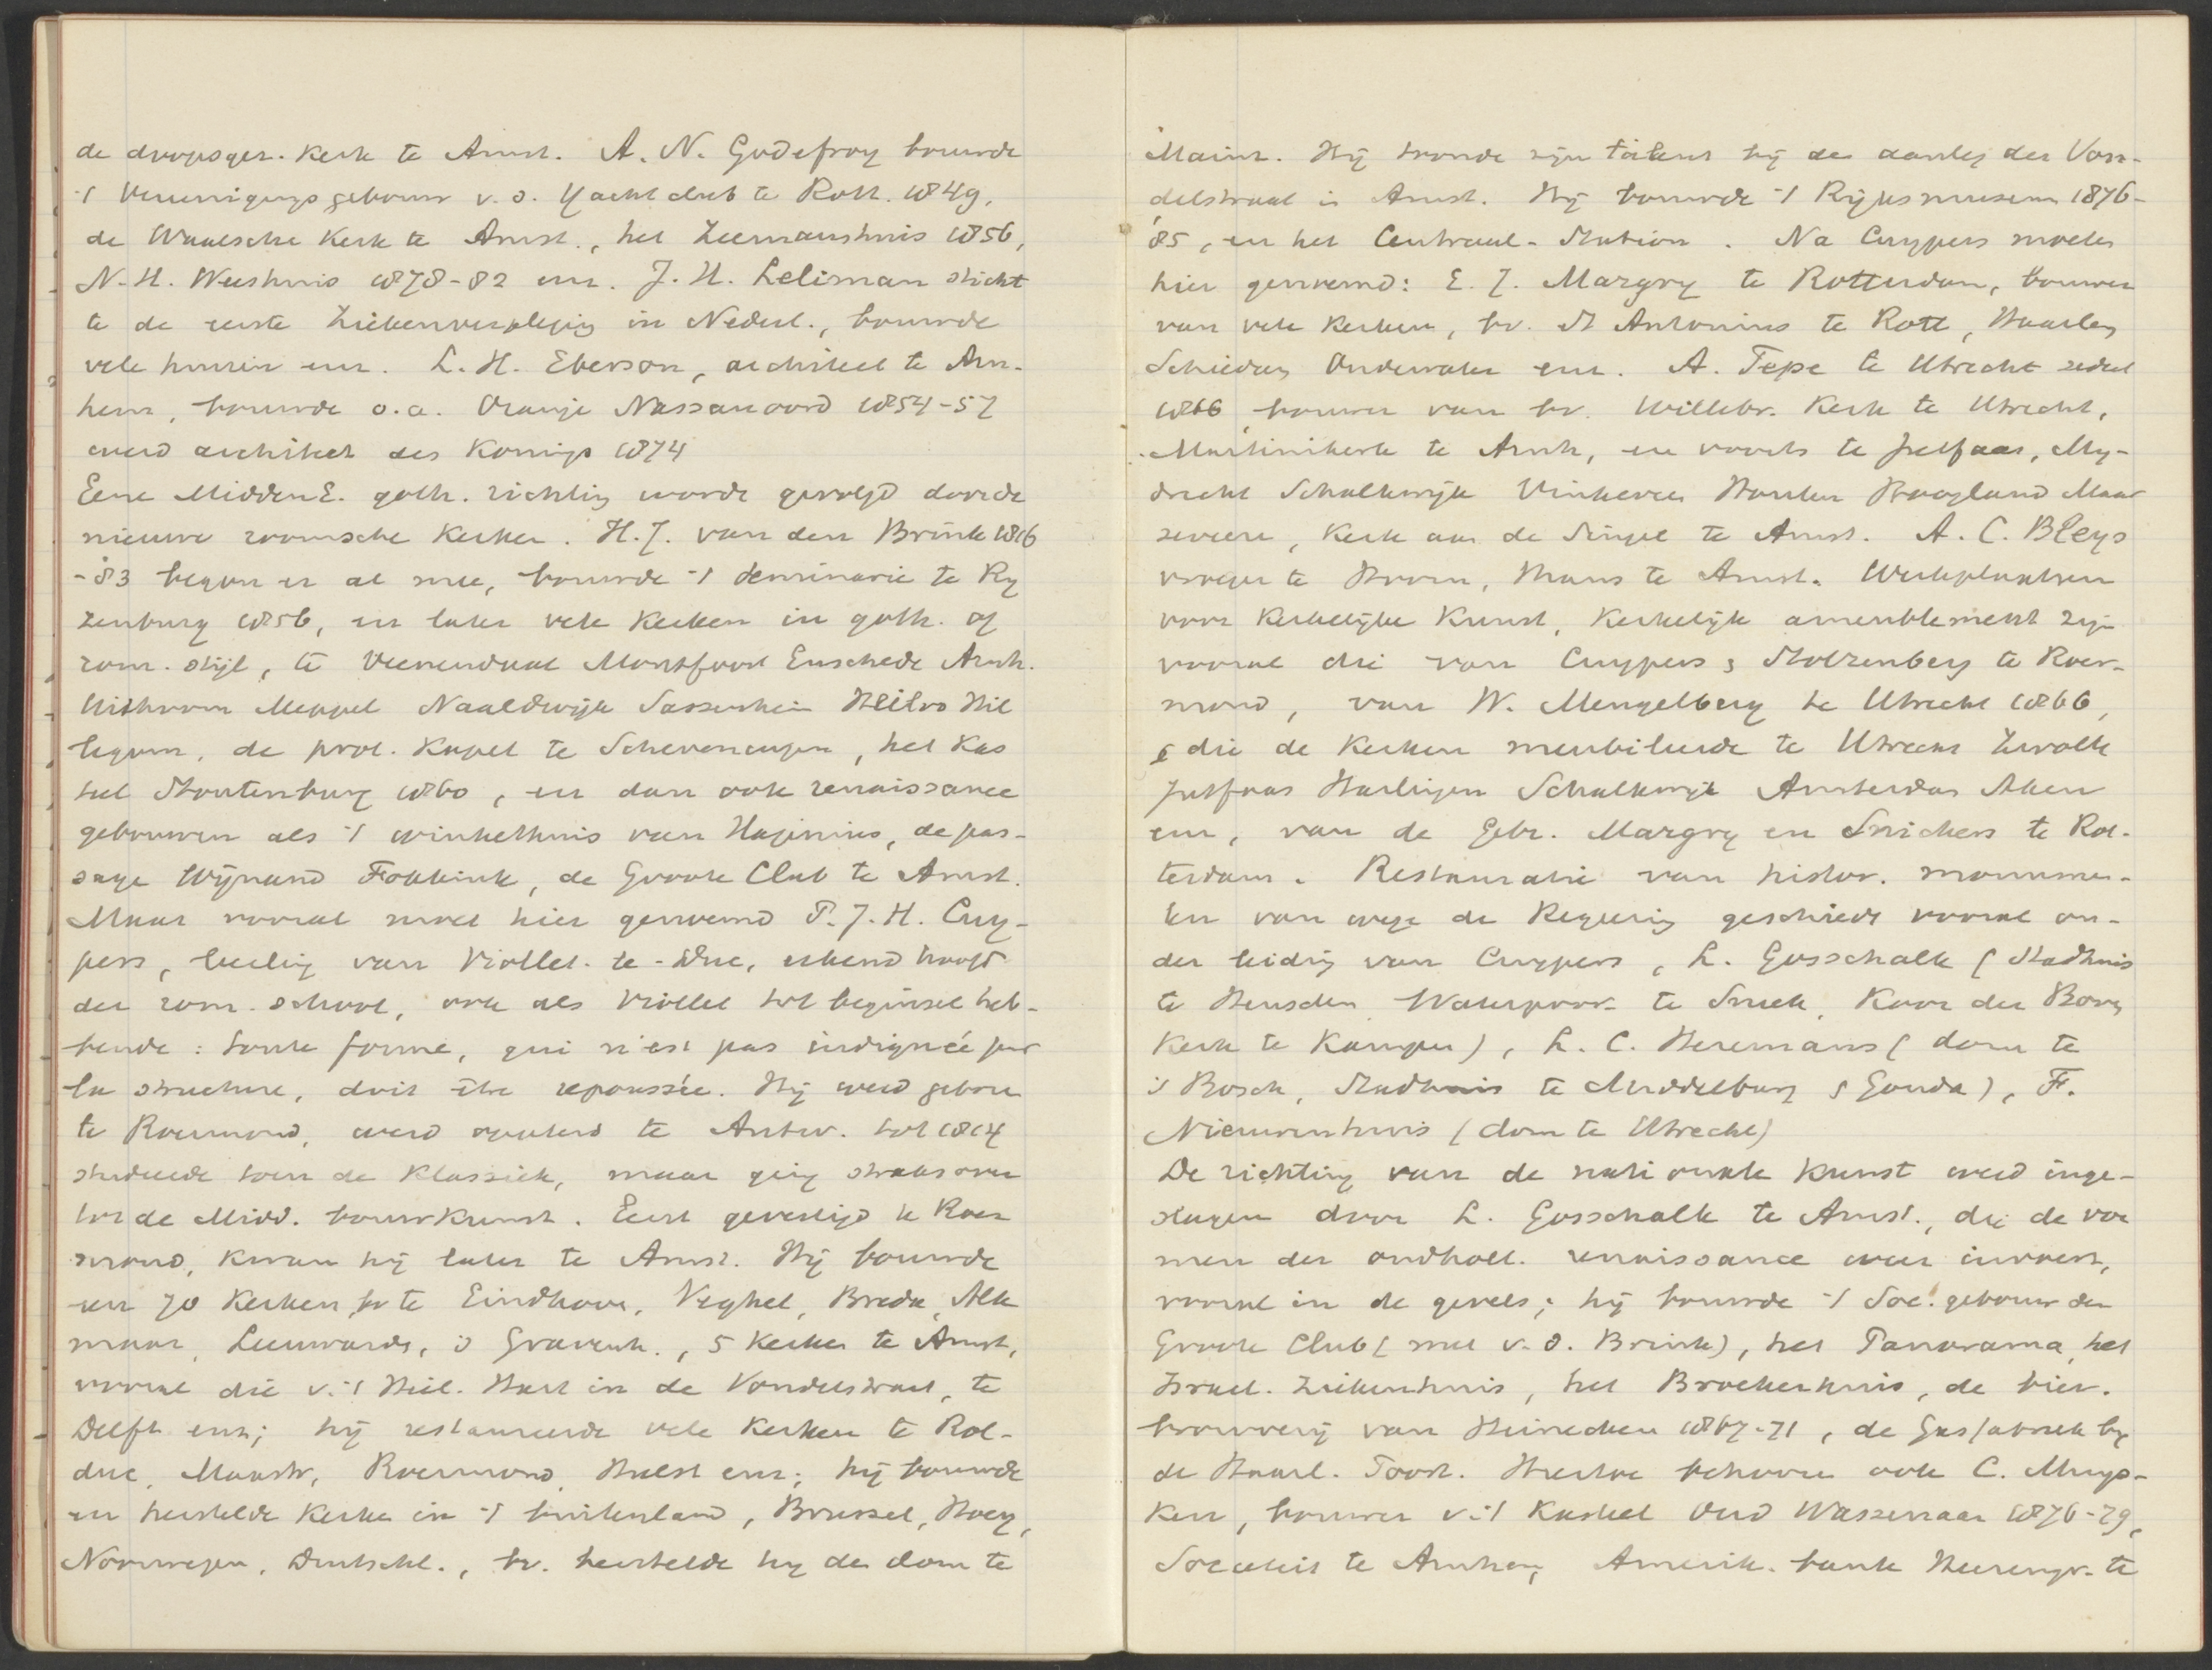 de doopsgez. Kerk te Amst. A. N. Godefroy bouwde
't Vereenigingsgebouw v. d. Yachtclub te Rott. 1849,
de Waalsche Kerk te Amst., het Zeemanshuis 1856,
N. H. Weeshuis 1878-82 enz. J. H. Leliman sticht
te de eerste Ziekenverpleging in Nederl., bouwde
vele huizen enz. L. H. Eberson, architect te Arn-
hem, bouwde o.a. Oranje Nassauoord 1854-57
werd architect des Konings 1874
Eene MiddenE. goth. richting worde gevolgd door de
nieuwe roomsche Kerken. H. J. van den Brink 1816
-83 begon er al mee, bouwde 't Seminarie te Ry
zenburg 1856, en later vele Kerken in goth. of
rom. stijl, te Veenendaal Montfoort Enschede Arnh.
Uithoorn Meppel Naaldwijk Sassenheim Heilo Hil
legom, de prot. Kapel te Scheveningen, het Kas
teel Stoutenburg 1860, en dan ook renaissance
gebouwen als 't winkelhuis van Haginius, de pas-
sage Wijnand Fokkink, de Groote Club te Amst.
Maar vooral moet hier genoemd P. J. H. Cuy-
pers, leerling van Viollet-le-Duc, erkend hoofd
der rom. school, ook als Viollet tot beginsel heb-
bende: toute forme, qui n'est pas indignée par
la structure, doit être repoussée. Hij werd geboren
te Roermond, werd opgeleid te Antw. tot 1814
studeerde toen de Klassiek, maar ging straks over
tot de Midd. bouwkunst. Eerst gevestigd te Roer
mond, kwam hij later te Amst. Hij bouwde
een 70 Kerken, bv te Eindhoven, Veghel, Breda, Alk
maar, Leeuwarden, 's Gravenh., 5 Kerken te Amst,
vooral die v. 't Heil. Hart in de Vondelstraat, te
Delft enz; hij restaureerde vele Kerken te Rol-
duc, Maastr, Roermond, Hulst enz; hij bouwde
en herstelde Kerken in 't buitenland, Brussel, Hoey,
Noorwegen, Duitschl., bv. herstelde hy den dom te
Mainz. Hij toonde zijn talent bij den aanleg der Von-
delstraat in Amst. Hij bouwde 't Rijksmuseum 1876-
'85, en het Centraal-Station. Na Cuypers moeten
hier genoemd: E. J. Margry te Rotterdam, bouwer
van vele Kerken, bv. St Antonius te Rott, Haarlem
Schiedam Oudewater enz. A. Tepe te Utrecht sedert
1866, bouwer van bv. Willebr. Kerk te Utrecht,
Martinikerk te Arnh, en voorts te Jutfaas, My-
drecht Schalkwijk Vinkeveen Houten Hoogland Maar
seveen, Kerk aan de Singel te Amst. A. C. Bleys
vroeger te Hoorn, thans te Amst. Werkplaatsen
voor Kerkelijke Kunst, Kerkelijk ameublement zijn
vooral die van Cuypers & Stoltzenberg te Roer-
mond, van W. Mengelberg te Utrecht 1866,
& die de Kerken meubileerde te Utrecht Zwolle
Jutfaas Harlingen Schalkwijk Amsterdam Aken
enz, van de Gebr. Margry en Snickers te Rot-
terdam. Restauratie van histor. monumen-
ten van wege de Regering geschiedt vooral on-
der leiding van Cuypers, L. Gosschalk (Stadhuis
te Heusden Waterpoort te Sneek, Koor der Boven
Kerk te Kampen), L. C. Hezemans (dom te
's Bosch, Stadhuis te Middelburg & Gouda), F.
Nieuwenhuis (dom te Utrecht)
De richting van de nationale Kunst werd inge-
slagen door L. Gosschalk te Amst., die de vor
men der oudholl. renaissance weer invoert,
vooral in de gevels; hij bouwde 't Soc. gebouw der
Groote Club (met v. d. Brink), het Panorama, het
Israel. Ziekenhuis, het Broekerhuis, de bier-
brouwerij van Heinecken 1867-71, de Gasfabriek by
de Haarl. Poort. Hiertoe behooren ook C. Muys-
ken, bouwer v. 't Kasteel Oud Wassenaar 1876-79,
Societeit te Arnhem, Amerik. bank Heerengr. te